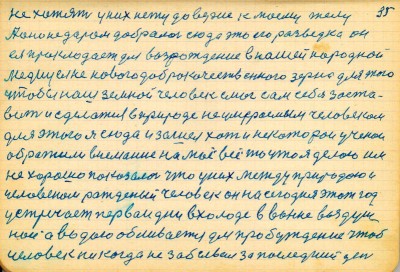 не хотят у них нету доверие к моему телу 35
Я понедаром добрался сюда это его разведка он
ея прокладает для возрождение в нашей народной
медицине нового доброкачественного зерна для того
чтобы наш земной человек смог сам себя заста-
вить и сделатся в природе не умераемым человеком
для этого я сюда и зашел хоти некоторои ученои
обратили внемание на моё всё то что я делаю им
не хорошо показалос что у них между природою и
человеком рожденый человек он на сегодня этот год
устречает первои дни в холоде в ванне воздуш
ной а водою обливается для пробуждение чтоб
человек никогда не забывал за последний ден